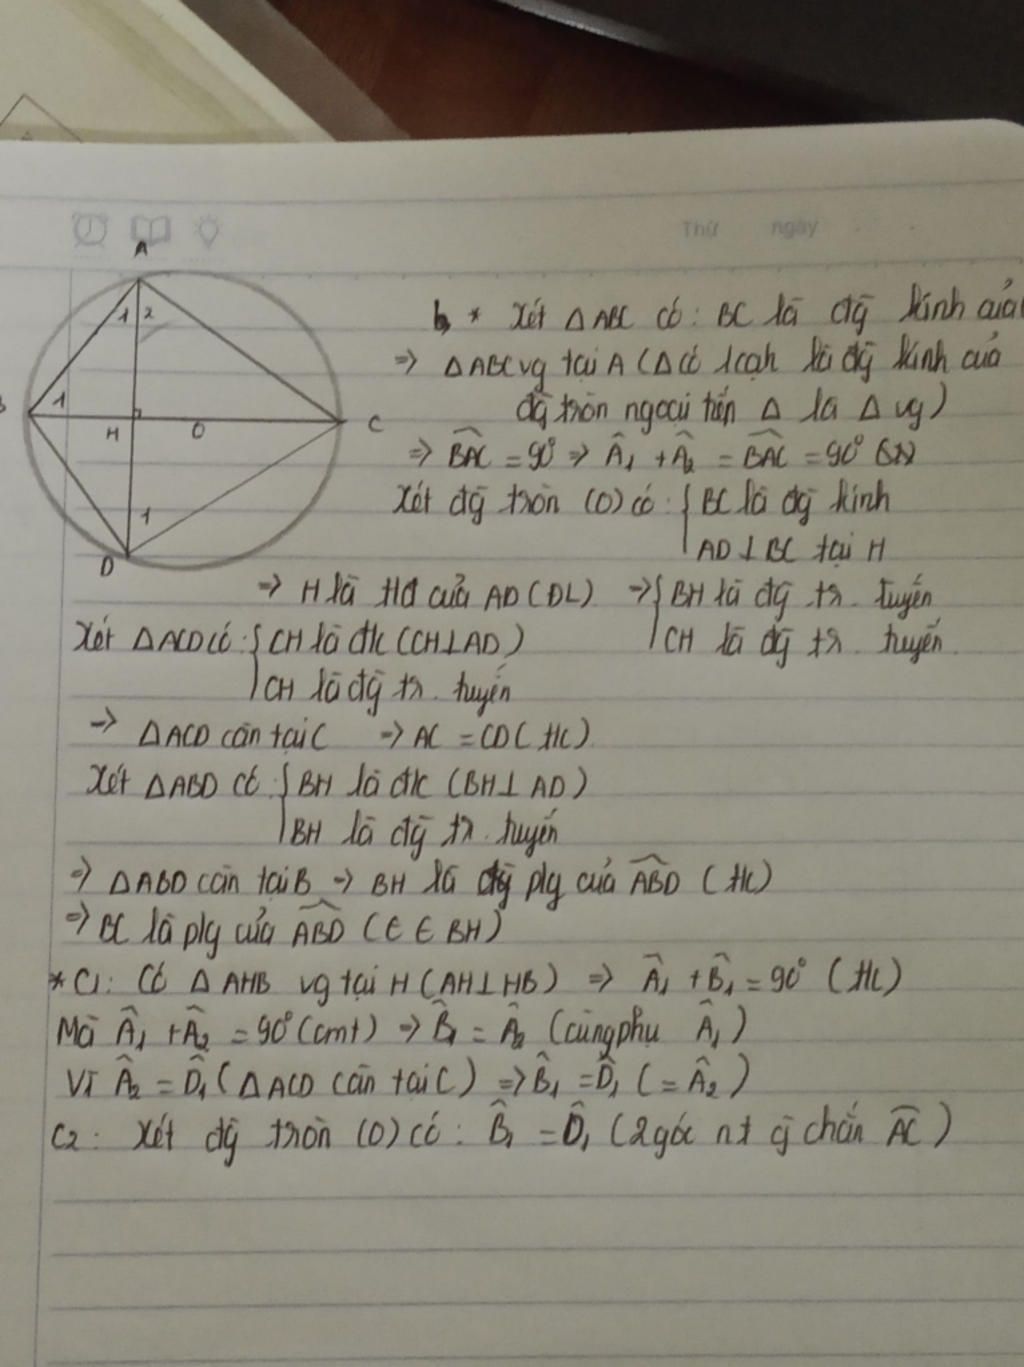 Thứ ngày
A
1 2
B 1 H O C
1
D
b, * Xét △ABC có: BC là đg̃ kính của
=> △ABC vg tại A (△ có 1 cạh là đg̃ kính của
đg̃ tròn ngoại tiếp △ là △ vg)
=> BAC = 90° => Â₁ + Â₂ = BAC = 90°
Xét đg̃ tròn (O) có: { BC là đg̃ kính
AD ⊥ BC tại H
=> H là tđ của AD (DL) => { BH là đg̃ tr. tuyến
CH là đg̃ tr. tuyến
Xét △ACD có: { CH là đk (CH ⊥ AD)
CH là đg̃ tr. tuyến
=> △ACD cân tại C => AC = CD (t/c)
Xét △ABD có: { BH là đk (BH ⊥ AD)
BH là đg̃ tr. tuyến
=> △ABD cân tại B => BH là đg̃ plg của ABD (t/c)
=> BC là plg của ABD (C ∈ BH)
* C1: Có △AHB vg tại H (AH ⊥ HB) => Â₁ + B̂₁ = 90° (t/c)
Mà Â₁ + Â₂ = 90° (cmt) => B̂₁ = Â₂ (cùng phụ Â₁)
Vì Â₂ = D̂₁ (△ACD cân tại C) => B̂₁ = D̂₁ (= Â₂)
C2: Xét đg̃ tròn (O) có: B̂₁ = D̂₁ (2 góc nt cg̃ chắn AC)